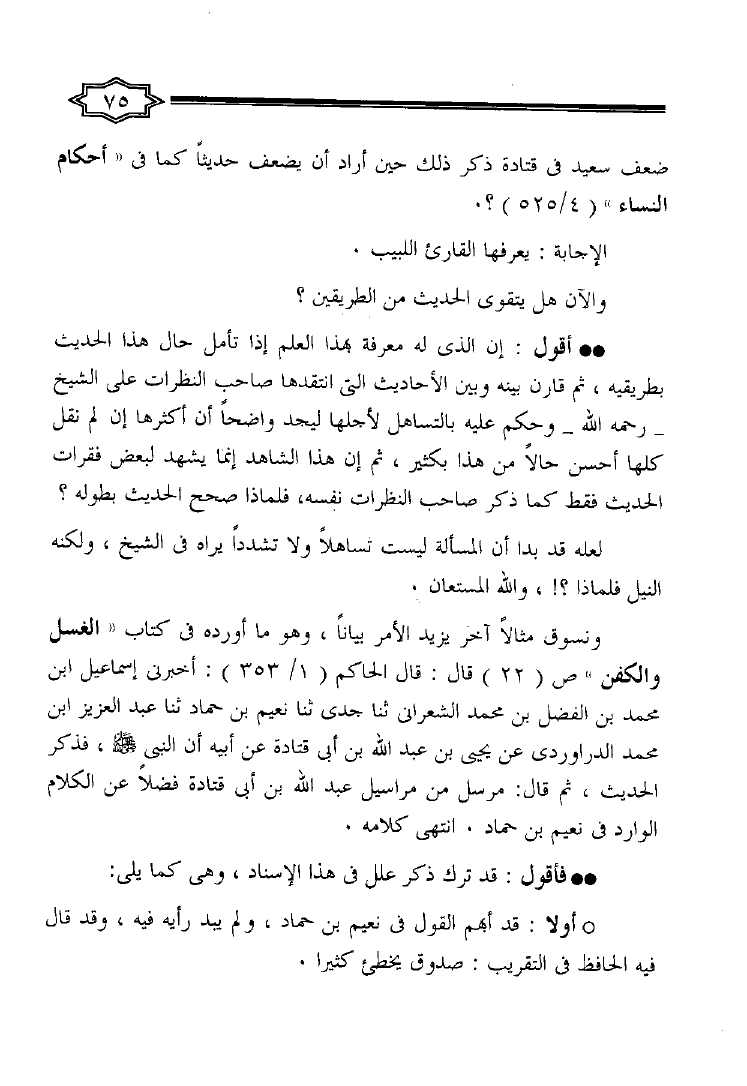 ٧٥
ضعف سعيد فى قتادة ذكر ذلك حين أراد أن يضعف حديثاً كما فى « أحكام
النساء » ( ٥٢٥/٤ ) ؟.
الإجابة : يعرفها القارئ اللبيب .
والآن هل يتقوى الحديث من الطريقين ؟
●● أقول : إن الذى له معرفة بهذا العلم إذا تأمل حال هذا الحديث
بطريقيه ، ثم قارن بينه وبين الأحاديث التى انتقدها صاحب النظرات على الشيخ
_ رحمه الله _ وحكم عليه بالتساهل لأجلها ليجد واضحاً أن أكثرها إن لم نقل
كلها أحسن حالاً من هذا بكثير ، ثم إن هذا الشاهد إنما يشهد لبعض فقرات
الحديث فقط كما ذكر صاحب النظرات نفسه، فلماذا صحح الحديث بطوله ؟
لعله قد بدا أن المسألة ليست تساهلاً ولا تشدداً يراه فى الشيخ ، ولكنه
النيل فلماذا ؟! ، والله المستعان .
ونسوق مثالاً آخر يزيد الأمر بياناً ، وهو ما أورده فى كتاب « الغسل
والكفن » ص ( ٢٢ ) قال : قال الحاكم ( ١/ ٣٥٣ ) : أخبرنى إسماعيل ابن
محمد بن الفضل بن محمد الشعرانى ثنا جدى ثنا نعيم بن حماد ثنا عبد العزيز ابن
محمد الدراوردى عن يحيى بن عبد الله بن أبى قتادة عن أبيه أن النبى ﷺ ، فذكر
الحديث ، ثم قال: مرسل من مراسيل عبد الله بن أبى قتادة فضلاً عن الكلام
الوارد فى نعيم بن حماد . انتهى كلامه .
●● فأقول : قد ترك ذكر علل فى هذا الإسناد ، وهى كما يلى:
○ أولا : قد أبهم القول فى نعيم بن حماد ، ولم يبد رأيه فيه ، وقد قال
فيه الحافظ فى التقريب : صدوق يخطئ كثيرا .